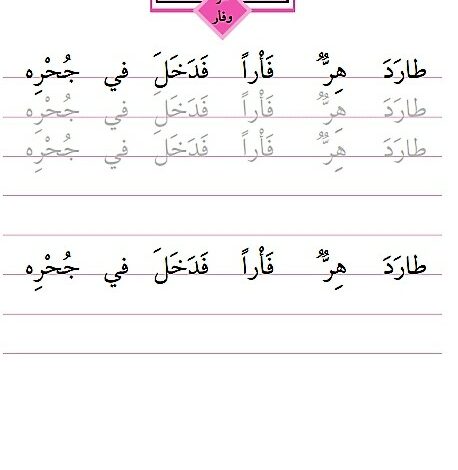 وفار
طارَدَ هِرٌّ فَأْراً فَدَخَلَ في جُحْرِه
طارَدَ هِرٌّ فَأْراً فَدَخَلَ في جُحْرِه
طارَدَ هِرٌّ فَأْراً فَدَخَلَ في جُحْرِه
طارَدَ هِرٌّ فَأْراً فَدَخَلَ في جُحْرِه